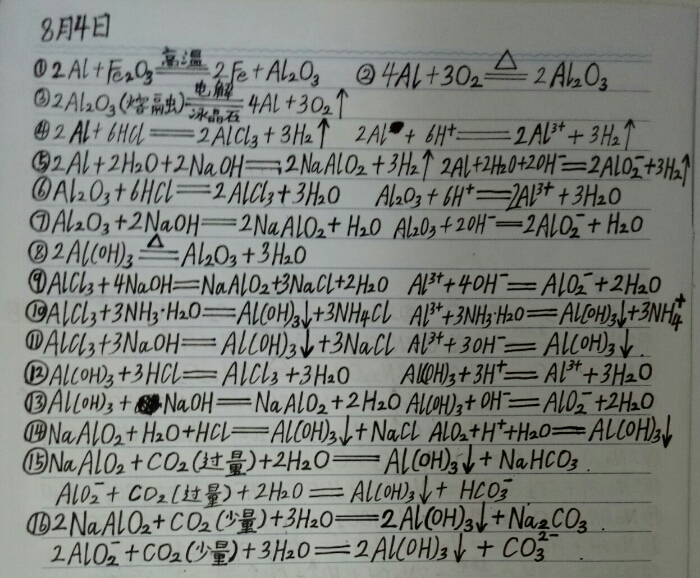 8月4日
①2Al+Fe₂O₃ 高温══ 2Fe+Al₂O₃ ②4Al+3O₂ △══ 2Al₂O₃
③2Al₂O₃(熔融虫) 电解══冰晶石 4Al+3O₂↑
④2Al+6HCl══2AlCl₃+3H₂↑ 2Al+6H⁺══2Al³⁺+3H₂↑
⑤2Al+2H₂O+2NaOH══2NaAlO₂+3H₂↑ 2Al+2H₂O+2OH⁻══2AlO₂⁻+3H₂↑
⑥Al₂O₃+6HCl══2AlCl₃+3H₂O Al₂O₃+6H⁺══2Al³⁺+3H₂O
⑦Al₂O₃+2NaOH══2NaAlO₂+H₂O Al₂O₃+2OH⁻══2AlO₂⁻+H₂O
⑧2Al(OH)₃ △══ Al₂O₃+3H₂O
⑨AlCl₃+4NaOH══NaAlO₂+3NaCl+2H₂O Al³⁺+4OH⁻══AlO₂⁻+2H₂O
⑩AlCl₃+3NH₃·H₂O══Al(OH)₃↓+3NH₄Cl Al³⁺+3NH₃·H₂O══Al(OH)₃↓+3NH₄⁺
⑪AlCl₃+3NaOH══Al(OH)₃↓+3NaCl Al³⁺+3OH⁻══Al(OH)₃↓.
⑫Al(OH)₃+3HCl══AlCl₃+3H₂O Al(OH)₃+3H⁺══Al³⁺+3H₂O
⑬Al(OH)₃+NaOH══NaAlO₂+2H₂O Al(OH)₃+OH⁻══AlO₂⁻+2H₂O
⑭NaAlO₂+H₂O+HCl══Al(OH)₃↓+NaCl AlO₂⁻+H⁺+H₂O══Al(OH)₃↓
⑮NaAlO₂+CO₂(过量)+2H₂O══Al(OH)₃↓+NaHCO₃.
AlO₂⁻+CO₂(过量)+2H₂O══Al(OH)₃↓+HCO₃⁻
⑯2NaAlO₂+CO₂(少量)+3H₂O══2Al(OH)₃↓+Na₂CO₃.
2AlO₂⁻+CO₂(少量)+3H₂O══2Al(OH)₃↓+CO₃²⁻